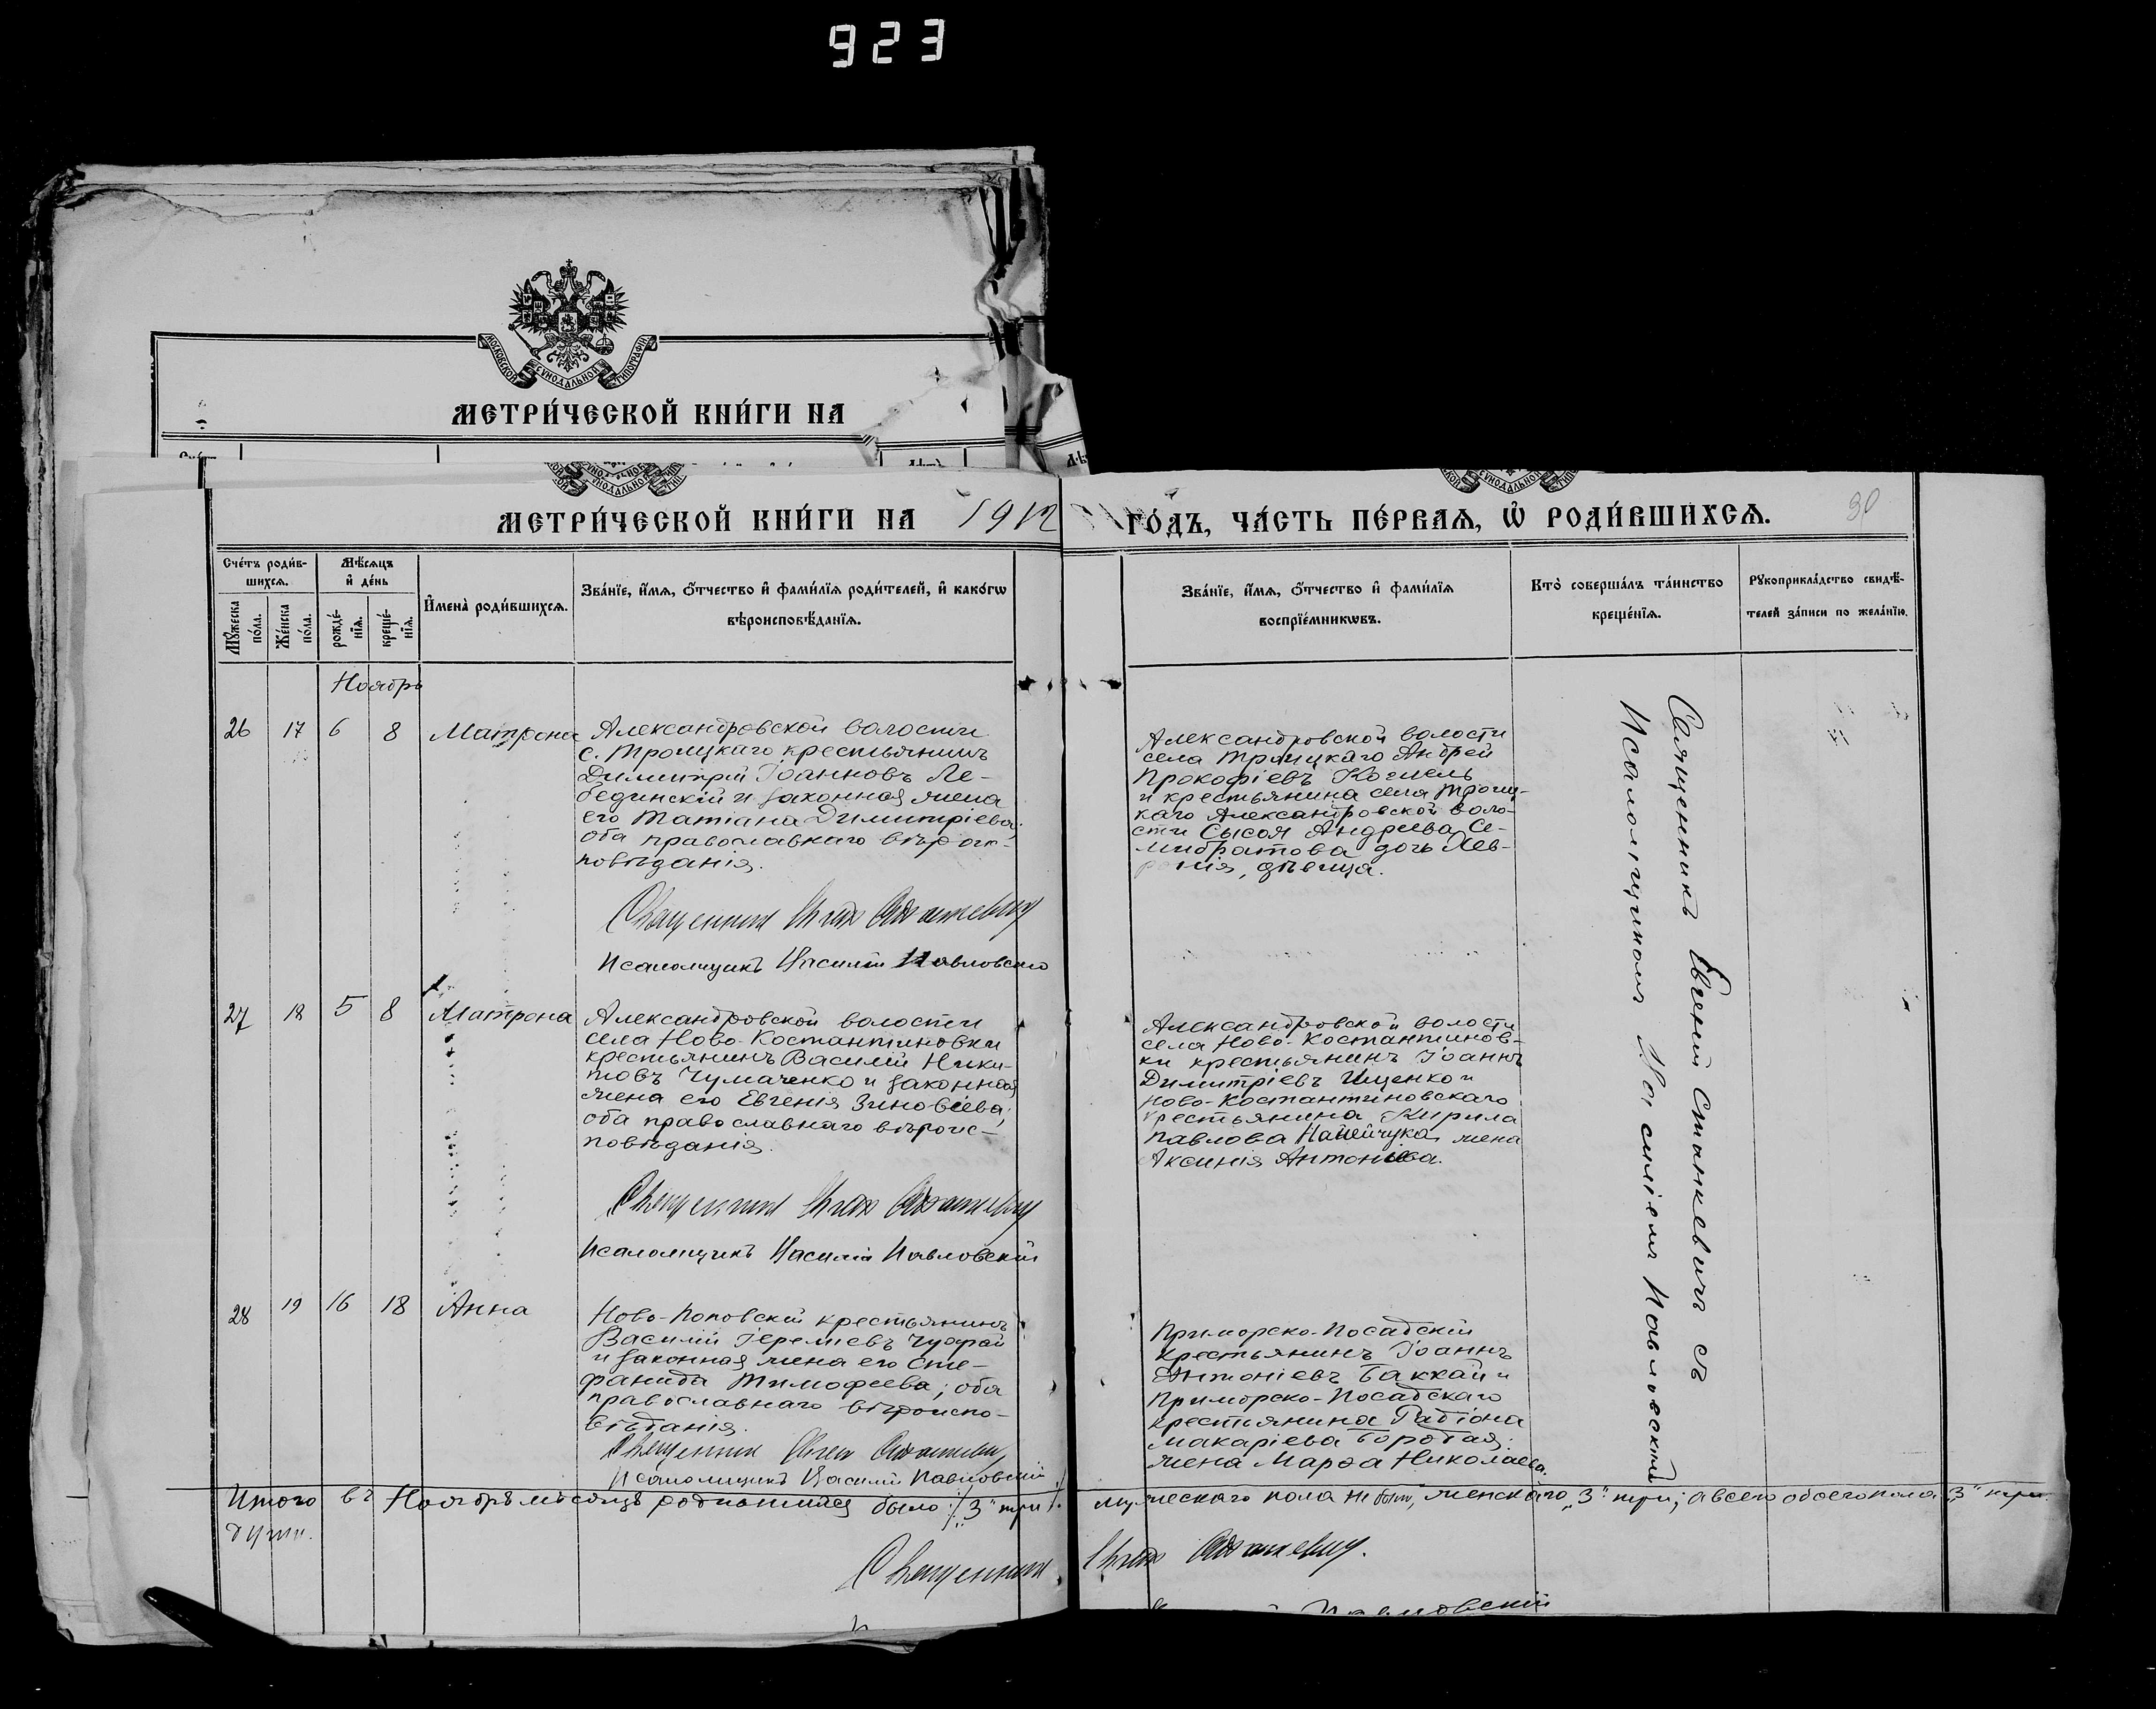 923
МОСКОВСКОЙ СѴНОДАЛЬНОЙ ТИПОГРАФІИ
МЕТРИ́ЧЕСКОЙ КНИ́ГИ НА
МЕТРИ́ЧЕСКОЙ КНИ́ГИ НА 1912 ГО́ДЪ, ЧА́СТЬ ПЕ́РВАѦ, Ѡ҆ РОДИ́ВШИХСѦ.
30
Сче́тъ роди́в-
шихсѧ.
Мꙋ́жеска
по́ла.
Же́нска
по́ла.
Мѣ́сѧцъ
и҆ де́нь
рожде́-
нїѧ.
креще́-
нїѧ.
И҆мена̀ роди́вшихсѧ.
Зва́нїе, и҆́мѧ, ѻ҆́тчество и҆ фами́лїѧ роди́телей, и҆ како́гѡ
вѣроисповѣ́данїѧ.
Зва́нїе, и҆́мѧ, ѻ҆́тчество и҆ фами́лїѧ
воспрїе́мникѡвъ.
Кто̀ соверша́лъ та́инство
креще́нїѧ.
Рꙋкоприкла́дство свидѣ́-
телей за́писи по жела́нїю.
Ноябрь
26 17 6 8 Матрона
Александровской волости
с. Троицкаго крестьянинъ
Димитрій Іоанновъ Ле-
бединскій и законная жена
его Татіана Димитріева;
оба православнаго вѣроис-
повѣданія.
Священникъ Евгеній Станкевичъ
Псаломщикъ Василій Павловскій
Александровской волости
села Троицкаго Андрей
Прокофіевъ Кочмель
и крестьянина села Троиц-
каго Александровской воло-
сти Сысоя Андреева Се-
мибратова дочь Хев-
ронія, дѣвица.
27 18 5 8 Матрона
Александровской волости
села Ново-Костантиновки
крестьянинъ Василій Ники-
товъ Чумаченко и законная
жена его Евгенія Зиновіева;
оба православнаго вѣроис-
повѣданія.
Священникъ Евгеній Станкевичъ
Псаломщикъ Василій Павловскій
Александровской волости
села Ново-Костантинов-
ки крестьянинъ Іоаннъ
Димитріевъ Ищенко и
Ново-Костантиновскаго
крестьянина Кирила
Павлова жена
Аксинія Антоніева.
28 19 16 18 Анна
Ново-Поповскій крестьянинъ
Василій Іереміевъ
и законная жена его Сте-
фанида Тимофеева; оба
православнаго вѣроиспо-
вѣданія.
Священникъ Евгеній Станкевичъ
Псаломщикъ Василій Павловскій
Приморско-Посадскій
крестьянинъ Іоаннъ
Антоніевъ Баккай и
Приморско-Посадскаго
крестьянина Радіона
Макаріева Бородая
жена Марфа Николаева.
Священникъ Евгеній Станкевичъ съ
Псаломщикомъ Василіемъ Павловскимъ
Итого въ Ноябрѣ мѣсяцѣ родившихся было: /„3" три/. мужескаго пола не было, женскаго „3" три; а всего обоего пола „3" три
души.
Священникъ Евгеній Станкевичъ.
Павловскій